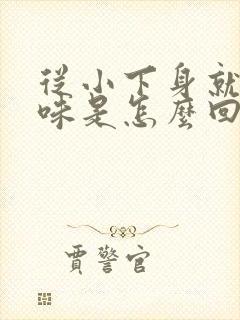 從小下身就
味是怎麼回
賈警官